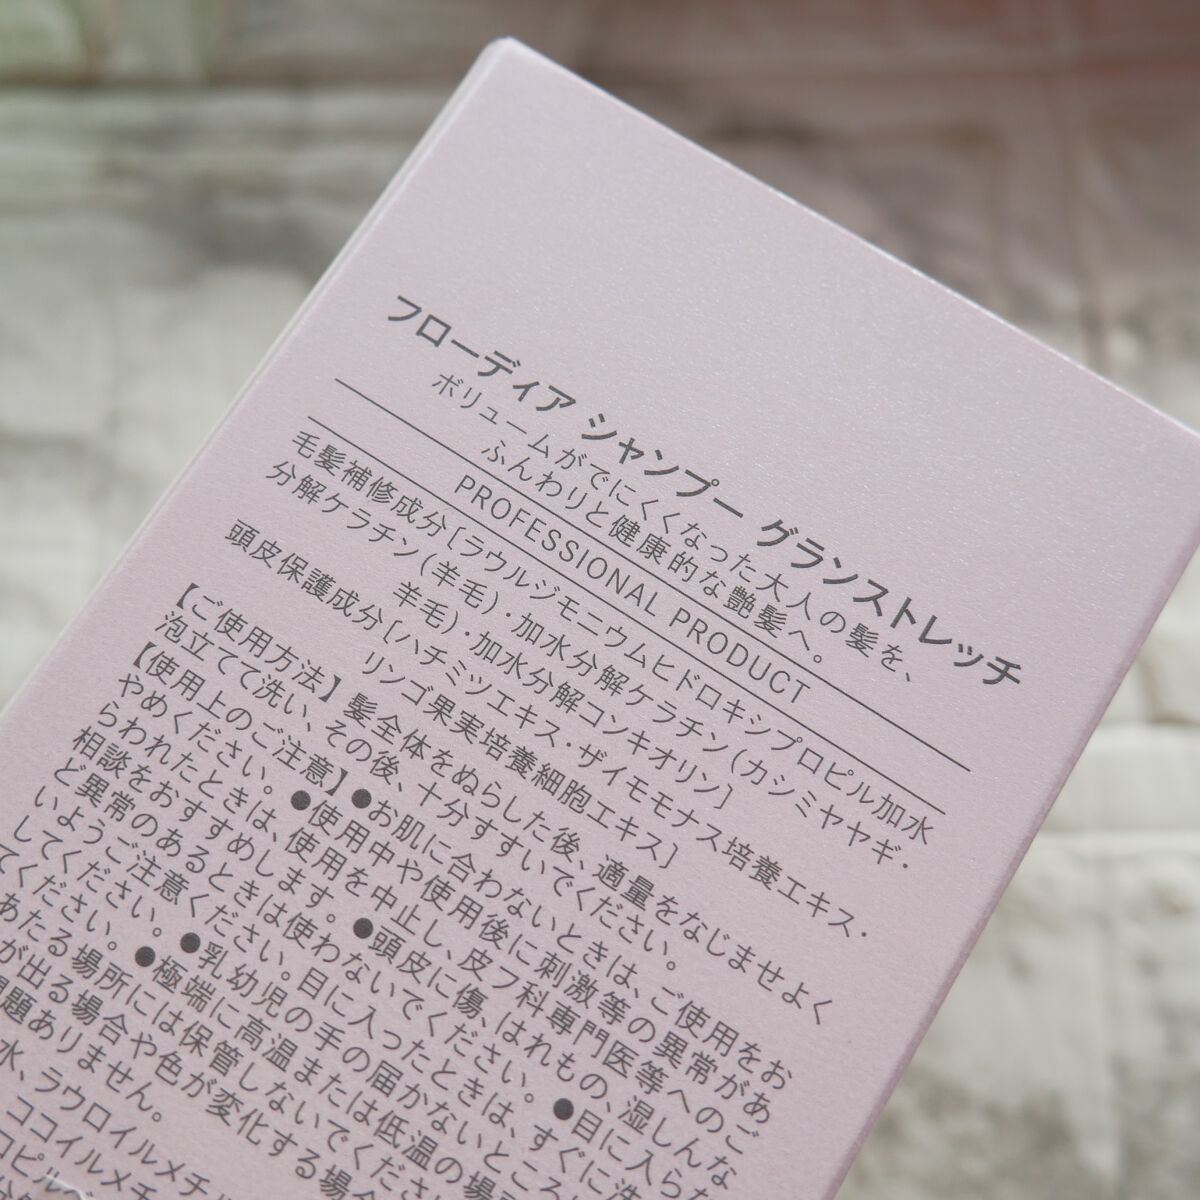 フローディア シャンプー グランストレッチ
ボリュームがでにくくなった大人の髪を、
ふんわりと健康的な艶髪へ。
PROFESSIONAL PRODUCT
毛髪補修成分［ラウルジモニウムヒドロキシプロピル加水
分解ケラチン（羊毛）・加水分解ケラチン（カシミヤヤギ・
羊毛）・加水分解コンキオリン］
頭皮保護成分［ハチミツエキス・ザイモモナス培養エキス・
リンゴ果実培養細胞エキス］
【ご使用方法】髪全体をぬらした後、適量をなじませよく
泡立てて洗い、その後、十分すすいでください。
【使用上のご注意】●お肌に合わないときは、ご使用をお
やめください。●使用中や使用後に刺激等の異常があ
らわれたときは、使用を中止し、皮フ科専門医等へのご
相談をおすすめします。●頭皮に傷、はれもの、湿しんな
ど異常のあるときは使わないでください。●目に入らな
いようご注意ください。目に入ったときは、すぐに洗
してください。●乳幼児の手の届かないところ
てください。●極端に高温または低温の場
あたる場所には保管しないでくださ
が出る場合や色が変化する場合
題ありません。
水、ラウロイルメチ
ココイルメチ
ロピルベ